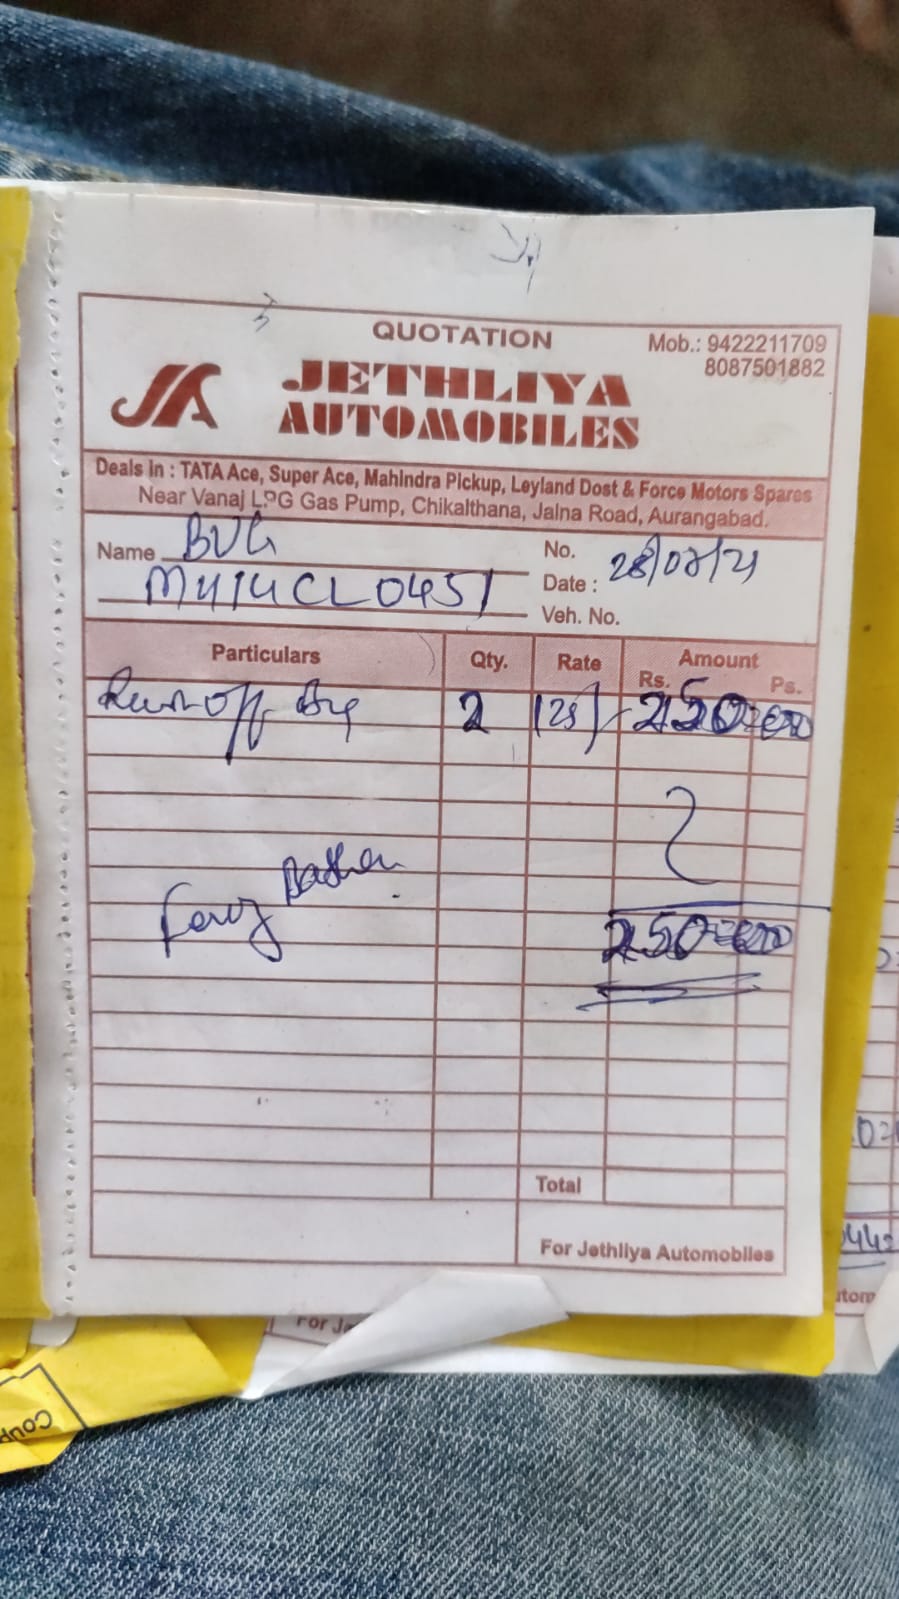 QUOTATION
Mob.: 9422211709
8087501882
JA JETHLIYA
AUTOMOBILES
Deals in : TATA Ace, Super Ace, Mahindra Pickup, Leyland Dost & Force Motors Spares
Near Vanaj LPG Gas Pump, Chikalthana, Jalna Road, Aurangabad.
Name BVG No.
MH14CL0451 Date : 28/07/21
Veh. No.
Particulars Qty. Rate Amount
Rs. Ps.
2 125/- 250=00
250=00
Total
For Jethliya Automobiles
For
Coup